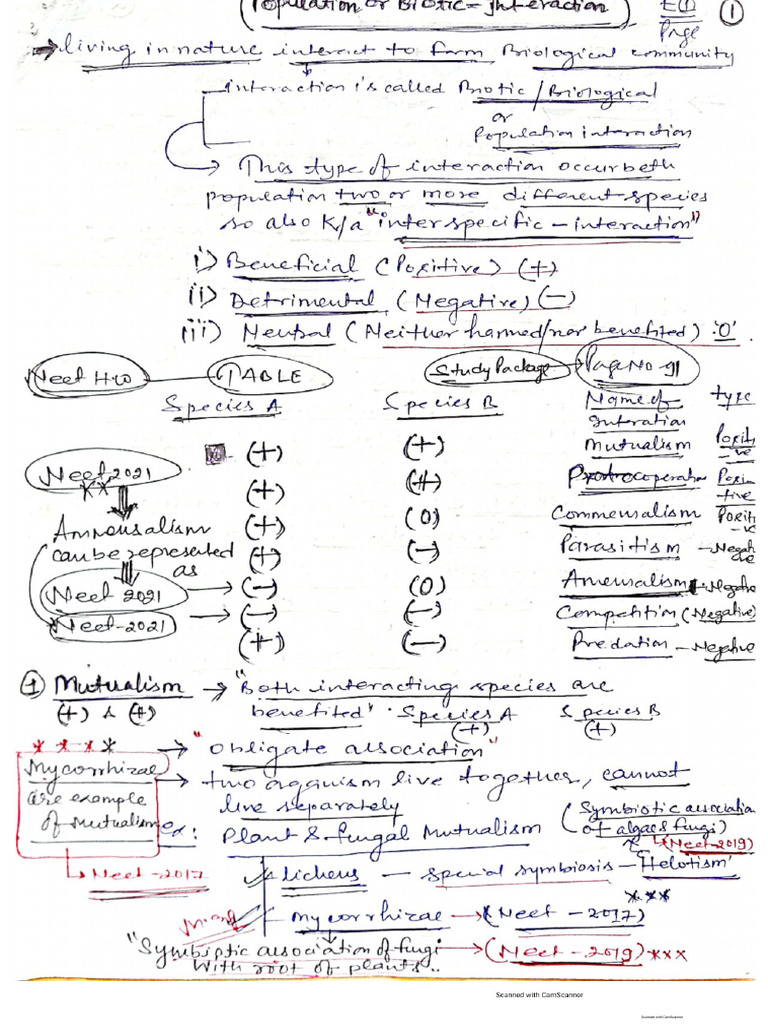 (Population or Biotic = Interaction)
Page
①
→ Living in nature interact to form Biological community
Interaction is called Biotic/Biological
or
Population interaction
→ This type of interaction occur beth
population two or more different species
so also K/a "interspecific-interaction"
i) Beneficial (Positive) (+)
ii) Detrimental (Negative) (-)
iii) Neutral (Neither harmed/nor benefited) 'O'
TABLE
Study Package → Page No-91
Species A Species B Name of type
Interation
(+) (+) Mutualism Positi-ve
Neet-2021 **
(+) (+) Protrocoperation Posin-tive
(+) (0) Commensalism Positi-ve
Ammensalism
can be represented
as
(+) (-) Parasitism - Negative
Neet 2021 → (-) (0) Amensalism - Negative
*Neet-2021 → (-) (-) Competition (Negative)
(+) (-) Predation - Negative
① Mutualism → "Both interacting species are
(+) & (+) benefited" Species A Species B
(+) (+)
* * * *
→ "obligate association"
Mycorrhizae
are example
of Mutualism
→ Neet-2017
→ two organism live together, cannot
live separately
ex: Plant & fungal Mutualism (Symbiotic association
of algae & fungi)
→ (Neet-2019)
Lichens - special symbiosis - 'Helotism'
***
Mycorrhizae → (Neet-2017)
"Symbiotic association of fungi → (Neet-2019) ***
With root of plants..
Scanned with CamScanner
Scanned with CamScanner